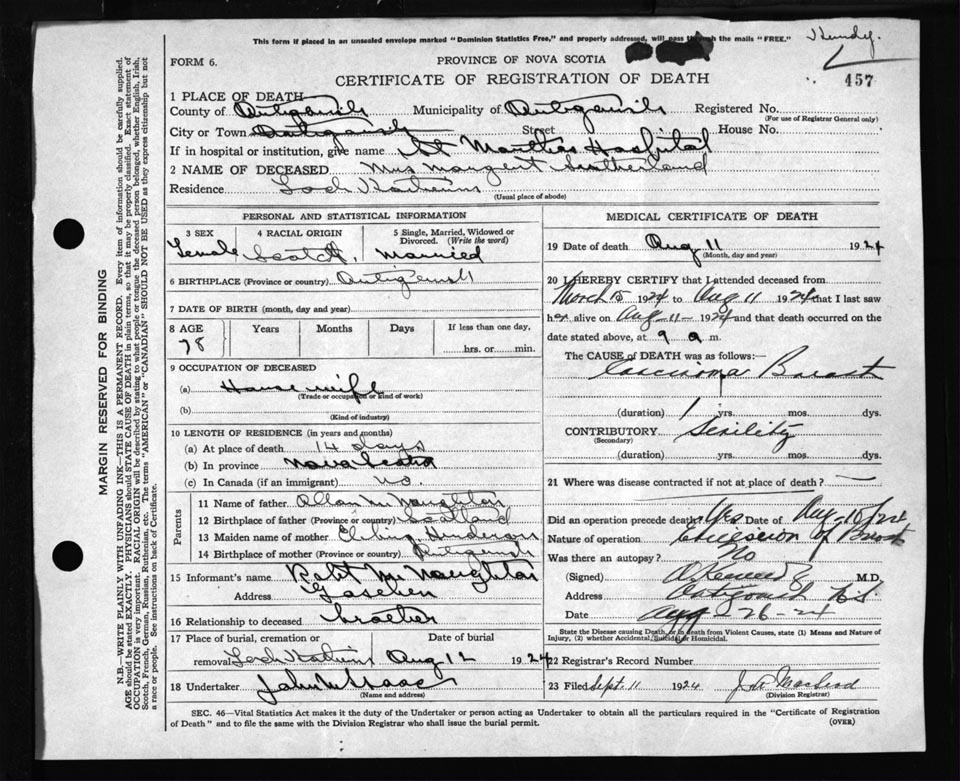 This form if placed in an unsealed envelope marked "Dominion Statistics Free," and properly addressed, will pass through the mails "FREE."
FORM 6.
PROVINCE OF NOVA SCOTIA
CERTIFICATE OF REGISTRATION OF DEATH
457
1 PLACE OF DEATH
County of Antigonish Municipality of Antigonish Registered No.
(For use of Registrar General only)
City or Town Antigonish Street House No.
If in hospital or institution, give name St Marthas Hospital
2 NAME OF DECEASED Mrs Margert Sutherland
Residence Loch Katrine
(Usual place of abode)
PERSONAL AND STATISTICAL INFORMATION
3 SEX 4 RACIAL ORIGIN 5 Single, Married, Widowed or Divorced. (Write the word)
Female Scotch. Married
6 BIRTHPLACE (Province or country) Antigonish
7 DATE OF BIRTH (month, day and year)
8 AGE Years Months Days If less than one day,
78 hrs. or min.
9 OCCUPATION OF DECEASED
(a) House wife
(Trade or occupation or kind of work)
(b)
(Kind of industry)
10 LENGTH OF RESIDENCE (in years and months)
(a) At place of death 14 days
(b) In province Nova Scotia
(c) In Canada (if an immigrant) no.
Parents
11 Name of father Allan McNaughton
12 Birthplace of father (Province or country) Scotland
13 Maiden name of mother Henderson
14 Birthplace of mother (Province or country) Antigonish
15 Informant's name Robt McNaughton
Address Goschen
16 Relationship to deceased brother
17 Place of burial, cremation or removal Loch Katrine Date of burial Aug 12 1924
18 Undertaker John McIsaac
(Name and address)
MEDICAL CERTIFICATE OF DEATH
19 Date of death Aug 11 1924
(Month, day and year)
20 I HEREBY CERTIFY that I attended deceased from
March 15 1924 to Aug 11 1924 that I last saw
her alive on Aug-11- 1924 and that death occurred on
date stated above, at 9 a m.
The CAUSE of DEATH was as follows:—
Carcinoma Breast
(duration) 1 yrs. mos. dys.
CONTRIBUTORY Senility
(Secondary)
(duration) yrs. mos. dys.
21 Where was disease contracted if not at place of death? —
Did an operation precede death? Yes Date of Aug-10/24
Nature of operation Excision of Breast
Was there an autopsy? No
(Signed) M.D.
Address Antigonish N.S.
Date Aug 26-24
State the Disease causing Death, or in death from Violent Causes, state (1) Means and Nature of
Injury, (2) whether Accidental, Suicidal or Homicidal.
22 Registrar's Record Number
23 Filed Sept. 11 1924 MacLeod
(Division Registrar)
SEC. 46—Vital Statistics Act makes it the duty of the Undertaker or person acting as Undertaker to obtain all the particulars required in the "Certificate of Registration
of Death" and to file the same with the Division Registrar who shall issue the burial permit.
(OVER)
MARGIN RESERVED FOR BINDING
N.B.—WRITE PLAINLY WITH UNFADING INK—THIS IS A PERMANENT RECORD. Every item of information should be carefully supplied.
AGE should be stated EXACTLY. PHYSICIANS should STATE CAUSE OF DEATH in plain terms, so that it may be properly classified. Exact statement of
OCCUPATION is very important. RACIAL ORIGIN will be described by stating to what people or tongue the deceased person belonged, whether English, Irish,
Scotch, French, German, Russian, Ruthenian, etc. The terms "AMERICAN" or "CANADIAN" SHOULD NOT BE USED as they express citizenship but not
a race or people. See instructions on back of Certificate.